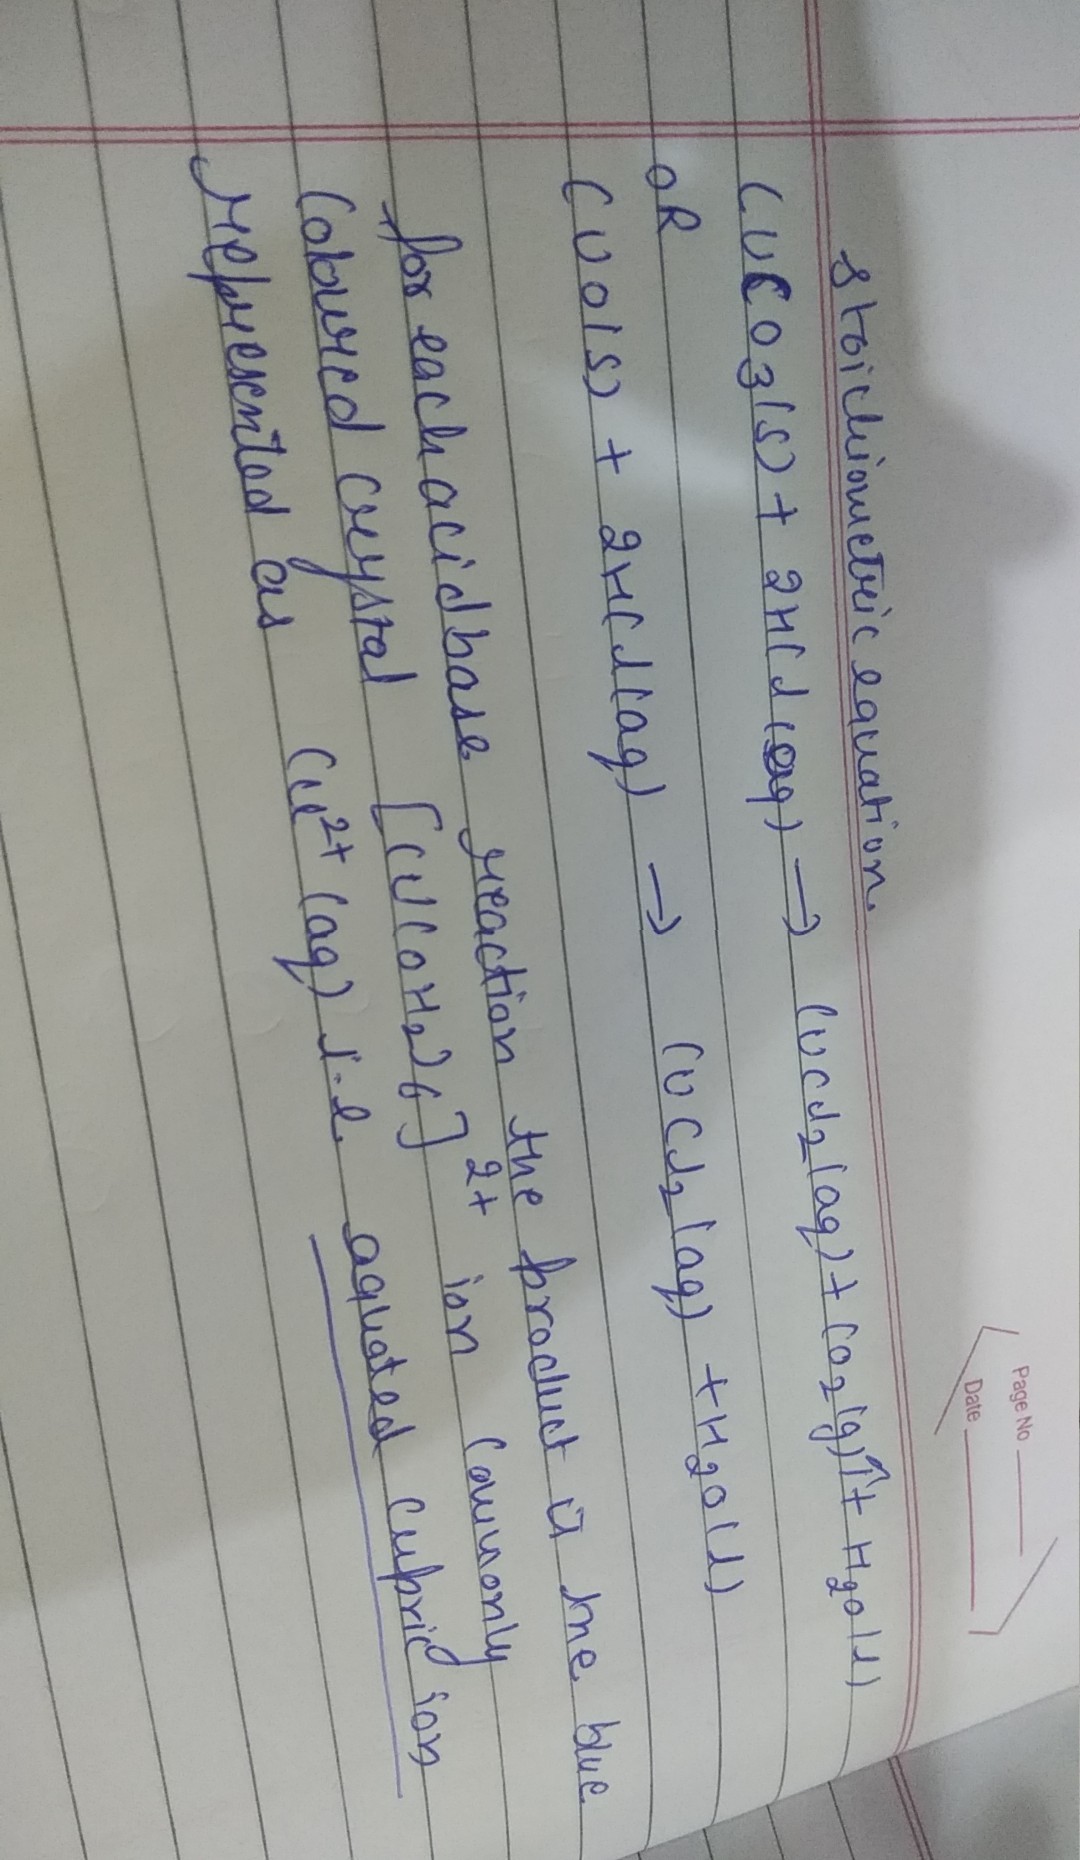 Page No
Date
Stoichiometric equation.
CuCO3(s) + 2HCl(aq) → CuCl2(aq) + CO2(g)↑ + H2O(l)
OR
CuO(s) + 2HCl(aq) → CuCl2(aq) + H2O(l)
for each acid base reaction the product is the blue
Coloured crystal [Cu(OH2)6]2+ ion Commonly
represented as Cu2+ (aq) i.e. aquated cupric ion